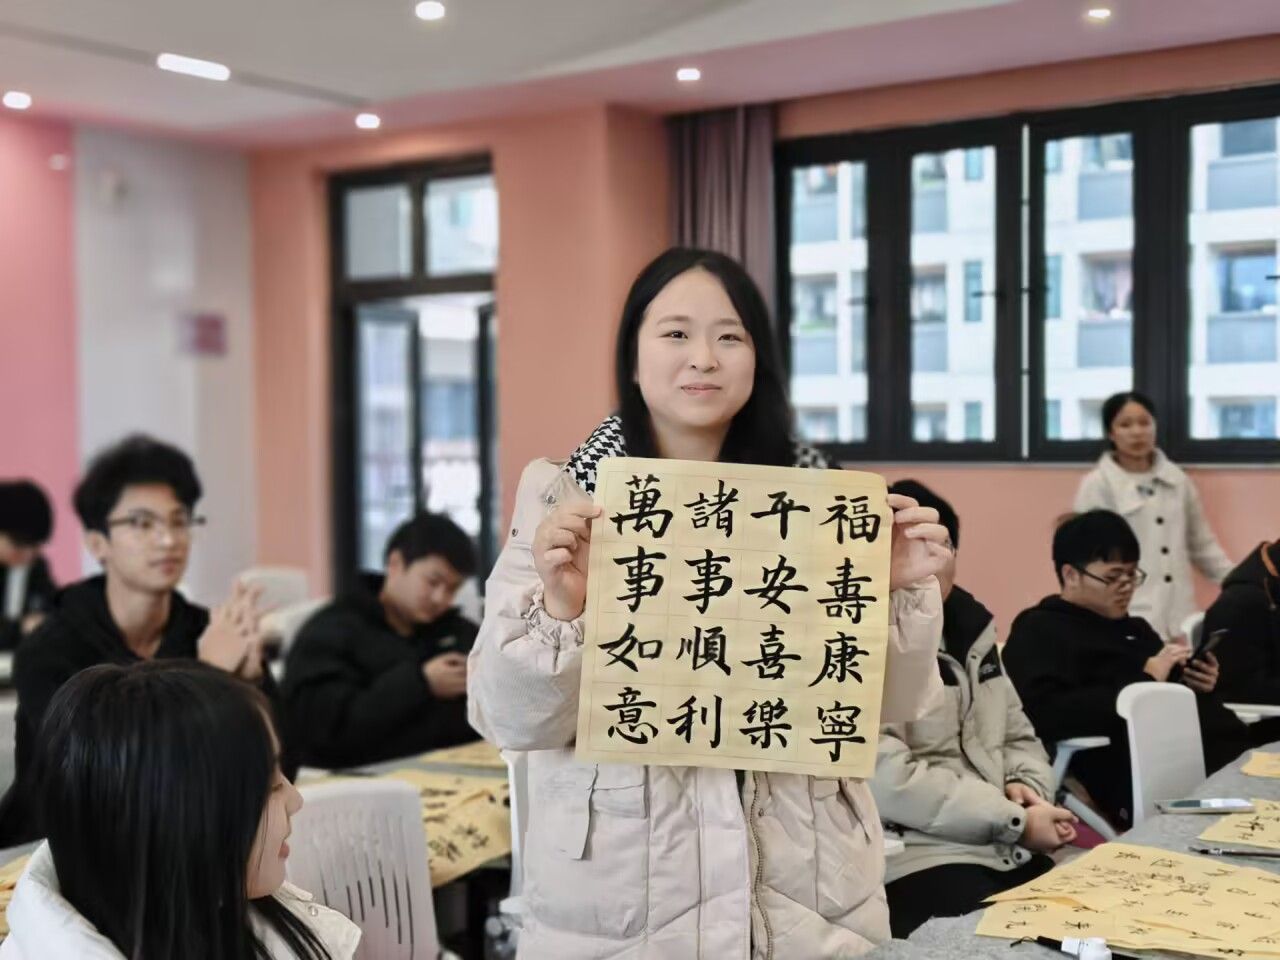 福壽康寧
平安喜樂
諸事順利
萬事如意